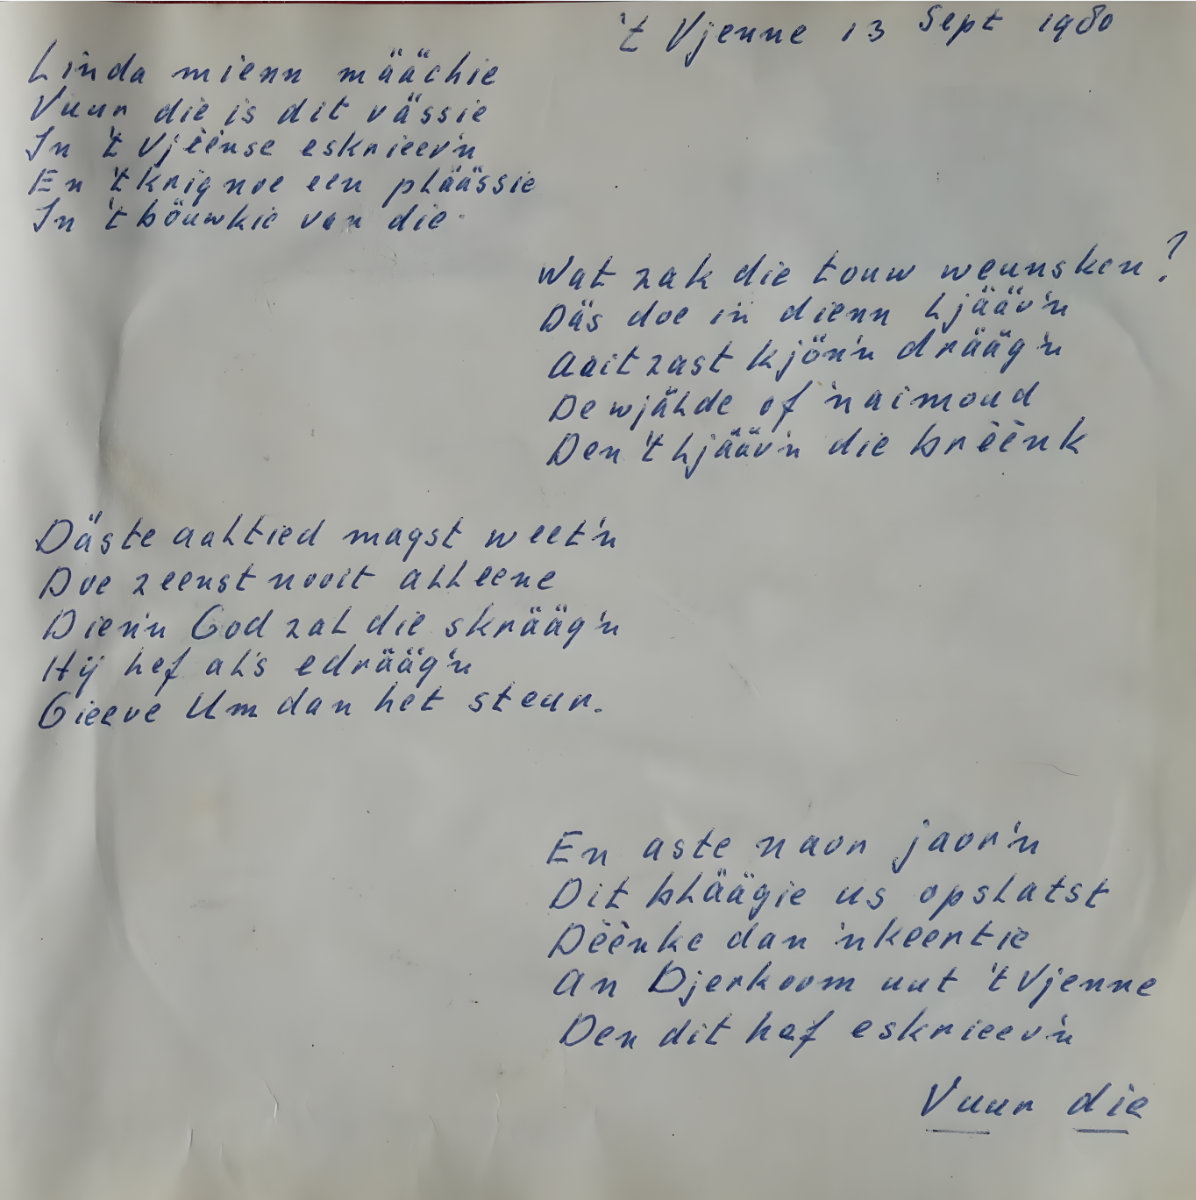 't Vjenne 13 Sept 1980
Linda mienn määchie
Vuur die is dit vässie
In 't Vjèènse eskrieev'n
En 't krig noe een pläässie
In 't böuwkie van die.
Wat zak die touw weunsken?
Däs doe in dienn Ljääv'n
Aait zast kjön'n drääg'n
De wjälde of 'n aimoud
Den 't Ljääv'n die brèènk
Däste aaltied magst weet'n
Doe zeenst nooit alleene
Dien'n God zal die skrääg'n
Hij hef al's edrääg'n
Gieeve Um dan het steur.
En aste naor jaor'n
Dit bläägie us opslatst
Dèènke dan 'n keertie
An Djerkoom uut 't Vjenne
Den dit hef eskrieev'n
Vuur die